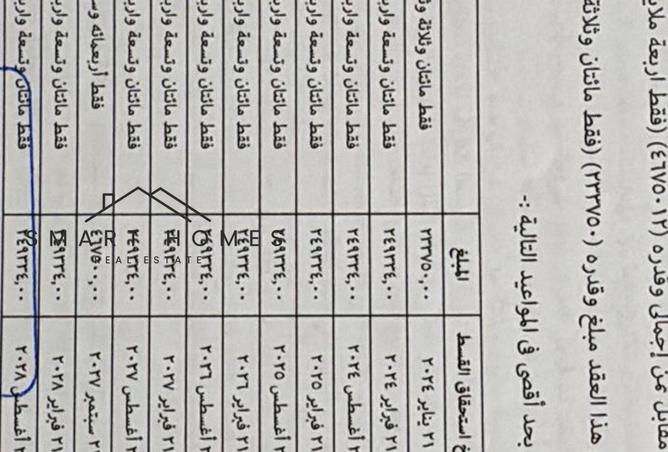 مقابل ثمن إجمالي وقدره (٤٦٧٥٠١٢) (فقط اربعة ملاي
هذا العقد مبلغ وقدره (٢٣٣٧٥٠) (فقط مائتان وثلاثة
بحد أقصى في المواعيد التالية :-
خ استحقاق القسط المبلغ
٢١ يناير ٢٠٢٤ ٢٣٣٧٥٠,٠٠ فقط مائتان وثلاثة و
٢١ فبراير ٢٠٢٤ ٢٤٩٣٣٤,٠٠ فقط مائتان وتسعة وارب
أغسطس ٢٠٢٤ ٢٤٩٣٣٤,٠٠ فقط مائتان وتسعة وارب
٢١ فبراير ٢٠٢٥ ٢٤٩٣٣٤,٠٠ فقط مائتان وتسعة وارب
أغسطس ٢٠٢٥ ٢٤٩٣٣٤,٠٠ فقط مائتان وتسعة وارب
٢١ فبراير ٢٠٢٦ ٢٤٩٣٣٤,٠٠ فقط مائتان وتسعة وارب
أغسطس ٢٠٢٦ ٢٤٩٣٣٤,٠٠ فقط مائتان وتسعة وارب
٢١ فبراير ٢٠٢٧ ٢٤٩٣٣٤,٠٠ فقط مائتان وتسعة وارب
أغسطس ٢٠٢٧ ٢٤٩٣٣٤,٠٠ فقط مائتان وتسعة وارب
سبتمبر ٢٠٢٧ ٤٦٧٥٠٠,٠٠ فقط أربعمائه وس
٢١ فبراير ٢٠٢٨ ٢٤٩٣٣٤,٠٠ فقط مائتان وتسعة وارب
أغسطس ٢٠٢٨ ٢٤٩٣٣٤,٠٠ فقط مائتان وتسعة وارب
SMART HOMES
REAL ESTATE